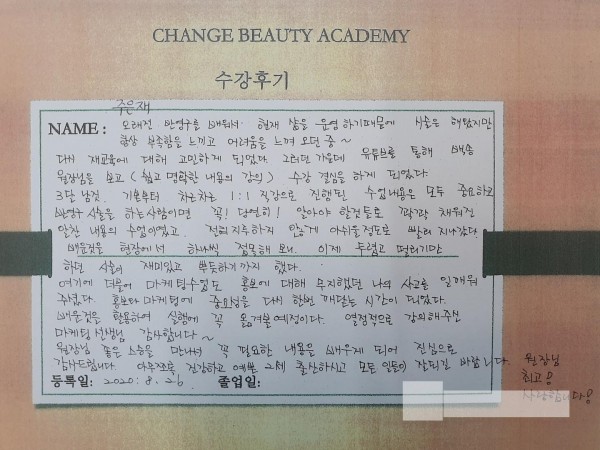 CHANGE BEAUTY ACADEMY
수강후기
주은재
NAME : 오래전 반영구를 배워서 현재 샵을 운영하기때문에 시술은 해왔지만
항상 부족함을 느끼고 어려움을 느껴 오던 중~
다시 재교육에 대해 고민하게 되었다. 그러던 가운데 유튜브를 통해
원장님을 보고 (쉽고 명확한 내용의 강의) 수강 결심을 하게 되었다.
3달 남짓. 기본부터 차근차근 1:1 직강으로 진행된 수업내용은 모두 중요하고
반영구 시술을 하는사람이면 꼭! 당연히! 알아야 할것들로 꽉꽉 채워진
알찬 내용의 수업이였고. 전혀 지루하지 않게 아쉬울정도로 빨리 지나갔다.
배운것을 현장에서 하나씩 접목해 보니. 이제 두렵고 떨리기만
하던 시술이 재미있고 뿌듯하기까지 했다.
여기에 더불어 마케팅수업도 홍보에 대해 무지했던 나의 사고를 일깨워
주셨다. 홍보와 마케팅에 중요성을 다시 한번 깨닫는 시간이 되었다.
배운것을 활용하여 실행에 꼭 옮겨볼 예정이다. 열정적으로 강의해주신
마케팅 선생님 감사합니다~
원장님 좋은 스승을 만나서 꼭 필요한 내용을 배우게 되어 진심으로
감사드립니다. 아무쪼록 건강하고 예쁜 2세 출산하시고 모든 일들이 잘되길 바랍니다. 원장님
최고!
사랑합니다!
등록일: 2020. 8. 26 졸업일: